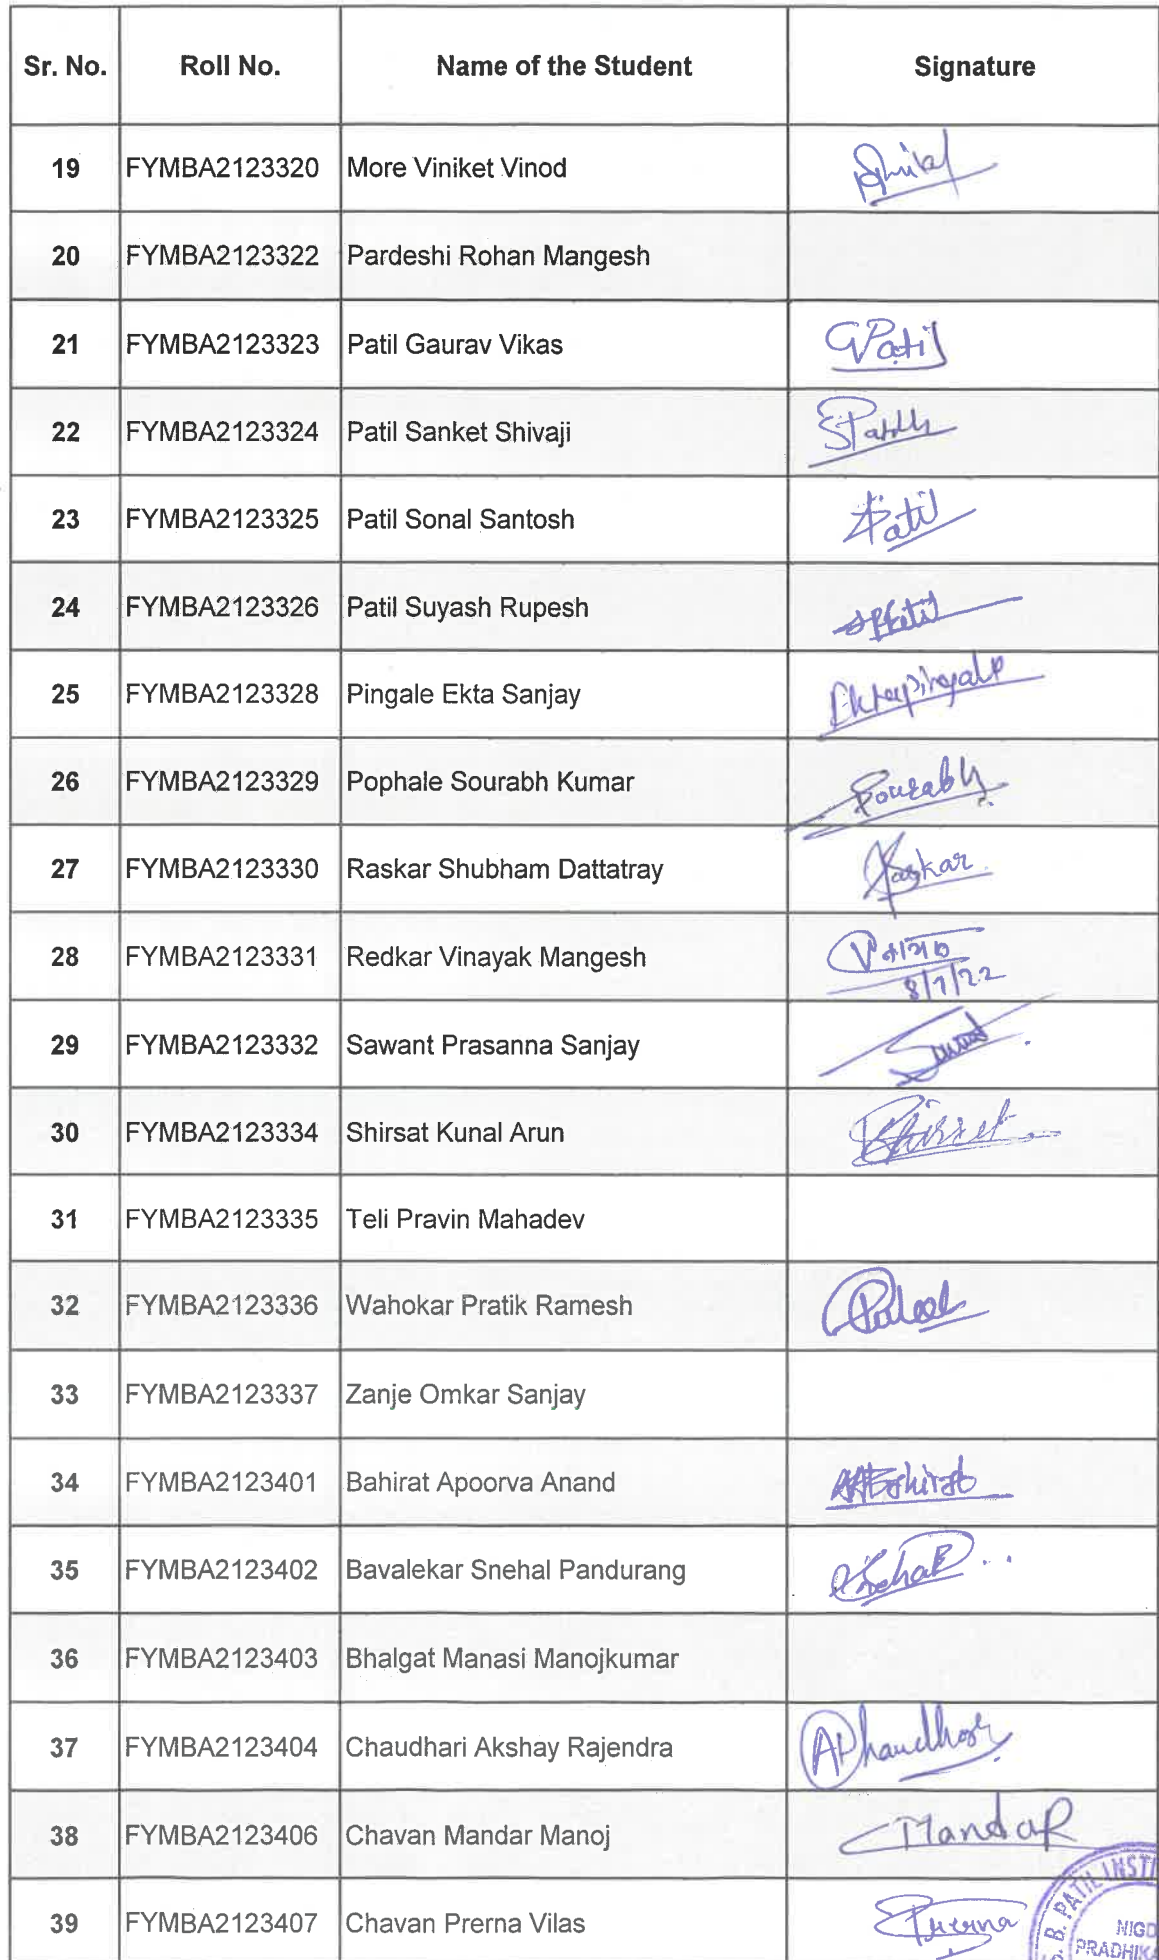 Sr. No. Roll No. Name of the Student Signature
19 FYMBA2123320 More Viniket Vinod
20 FYMBA2123322 Pardeshi Rohan Mangesh
21 FYMBA2123323 Patil Gaurav Vikas GPatil
22 FYMBA2123324 Patil Sanket Shivaji
23 FYMBA2123325 Patil Sonal Santosh Patil
24 FYMBA2123326 Patil Suyash Rupesh
25 FYMBA2123328 Pingale Ekta Sanjay Ektapingale
26 FYMBA2123329 Pophale Sourabh Kumar Sourabh
27 FYMBA2123330 Raskar Shubham Dattatray Raskar
28 FYMBA2123331 Redkar Vinayak Mangesh
8/7/22
29 FYMBA2123332 Sawant Prasanna Sanjay
30 FYMBA2123334 Shirsat Kunal Arun
31 FYMBA2123335 Teli Pravin Mahadev
32 FYMBA2123336 Wahokar Pratik Ramesh
33 FYMBA2123337 Zanje Omkar Sanjay
34 FYMBA2123401 Bahirat Apoorva Anand
35 FYMBA2123402 Bavalekar Snehal Pandurang
36 FYMBA2123403 Bhalgat Manasi Manojkumar
37 FYMBA2123404 Chaudhari Akshay Rajendra
38 FYMBA2123406 Chavan Mandar Manoj Mandar
39 FYMBA2123407 Chavan Prerna Vilas Prerna
B. PATIL INSTI
NIGD
PRADHIKA